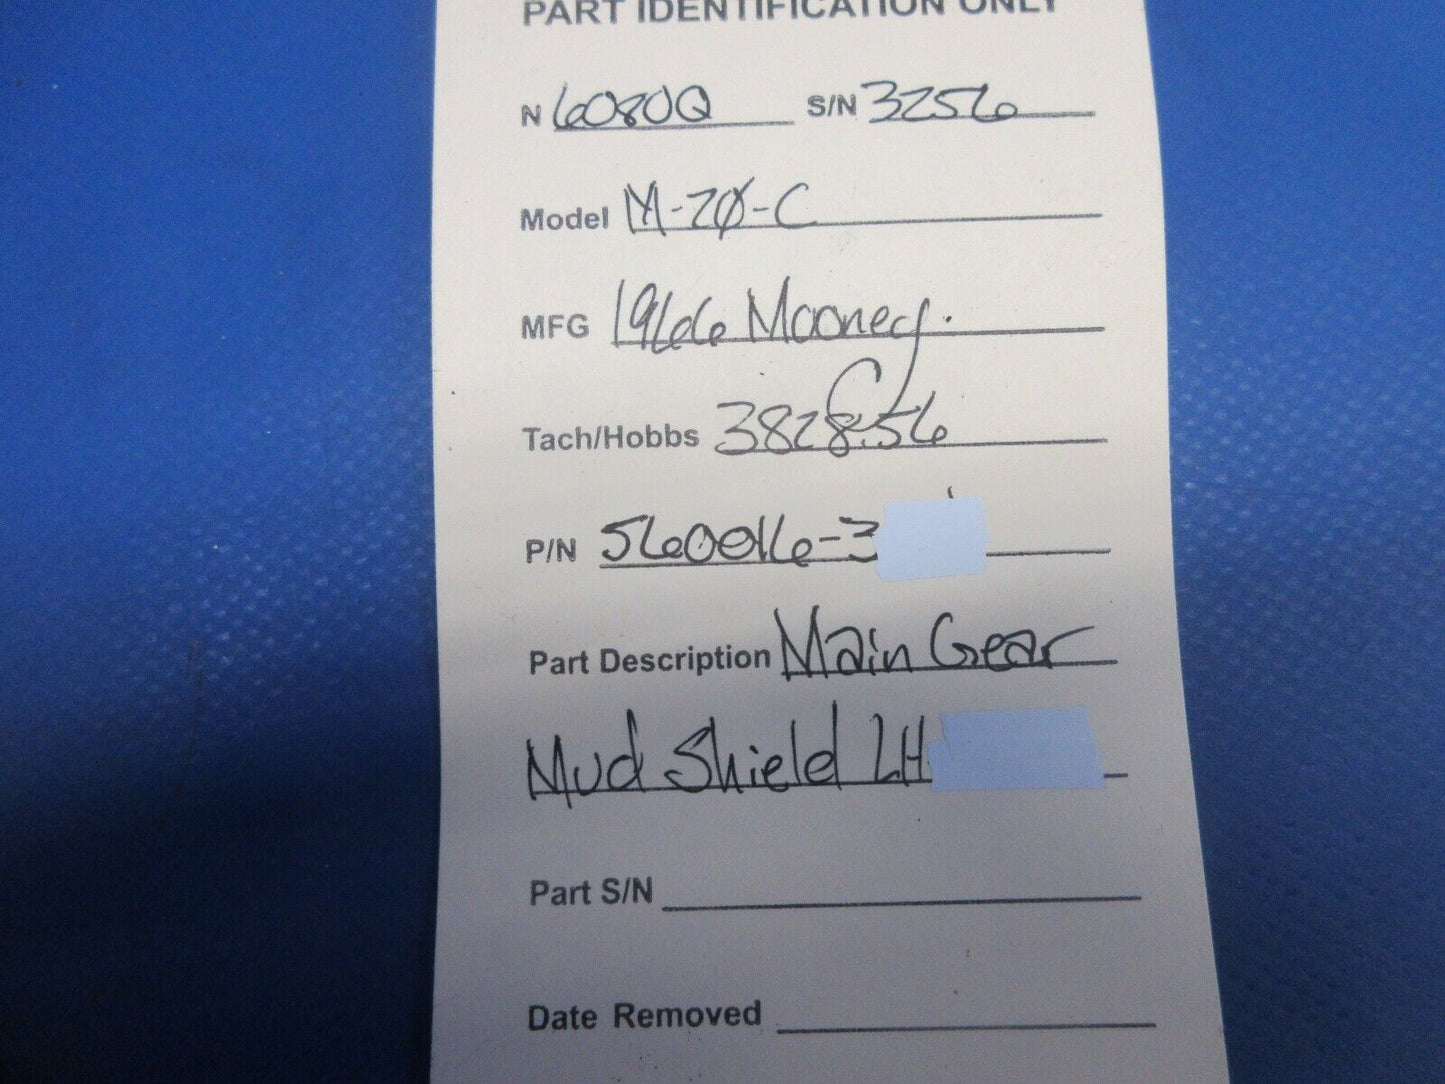 PART IDENTIFICATION ONLY
N 6080Q S/N 3256
Model M-20-C
MFG 1966 Mooney.
Tach/Hobbs 3828.56
P/N 560016-3
Part Description Main Gear
Mud Shield LH
Part S/N
Date Removed